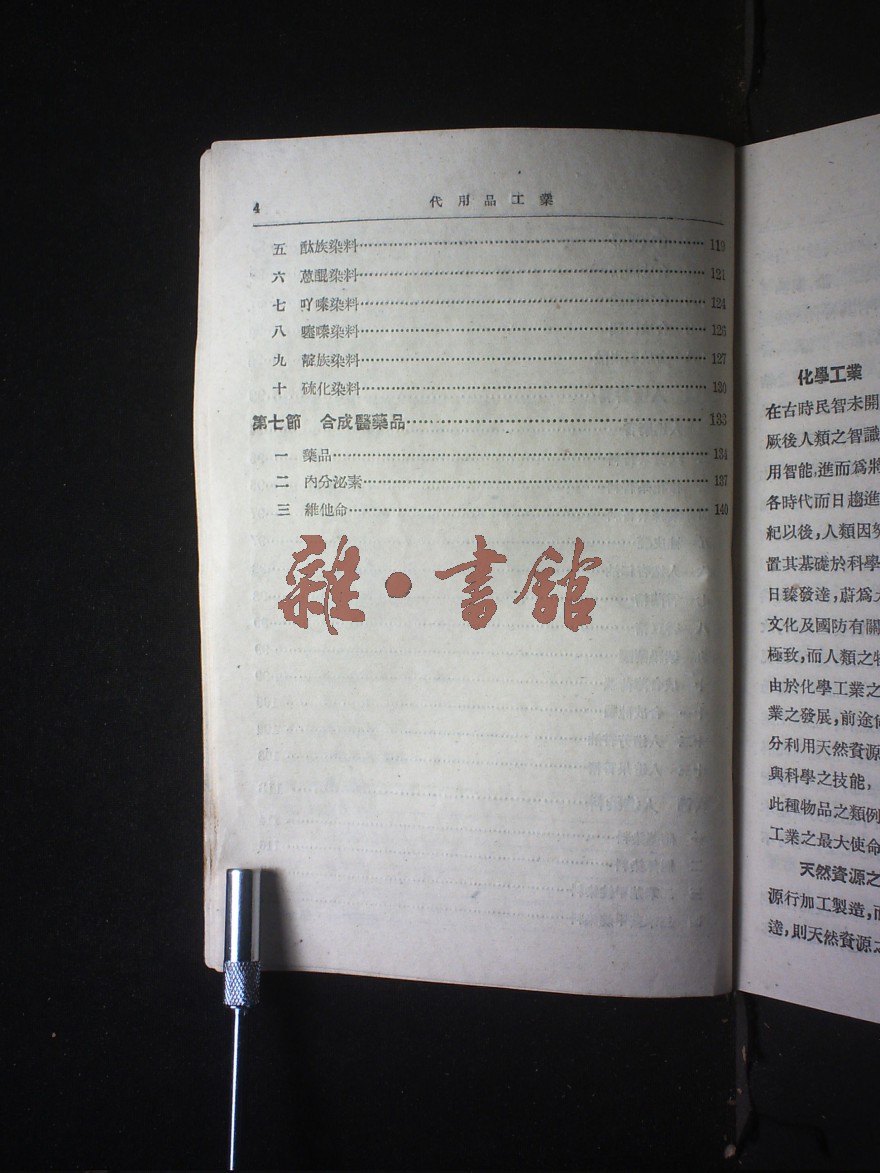 4 代用品工業
五 酞族染料 119
六 蒽醌染料 121
七 吖嗪染料 124
八 噻嗪染料 126
九 靛族染料 127
十 硫化染料 130
第七節 合成醫藥品 133
一 藥品 134
二 內分泌素 137
三 維他命 140
雜·書館
化學工業
在古時民智未開
厥後人類之智識
用智能,進而爲將
各時代而日趨進
紀以後,人類因
置其基礎於科學
日臻發達,蔚爲
文化及國防有關
極致,而人類之
由於化學工業之
業之發展,前途
分利用天然資源
與科學之技能,
此種物品之類例
工業之最大使命
天然資源之
源行加工製造,
達,則天然資源之